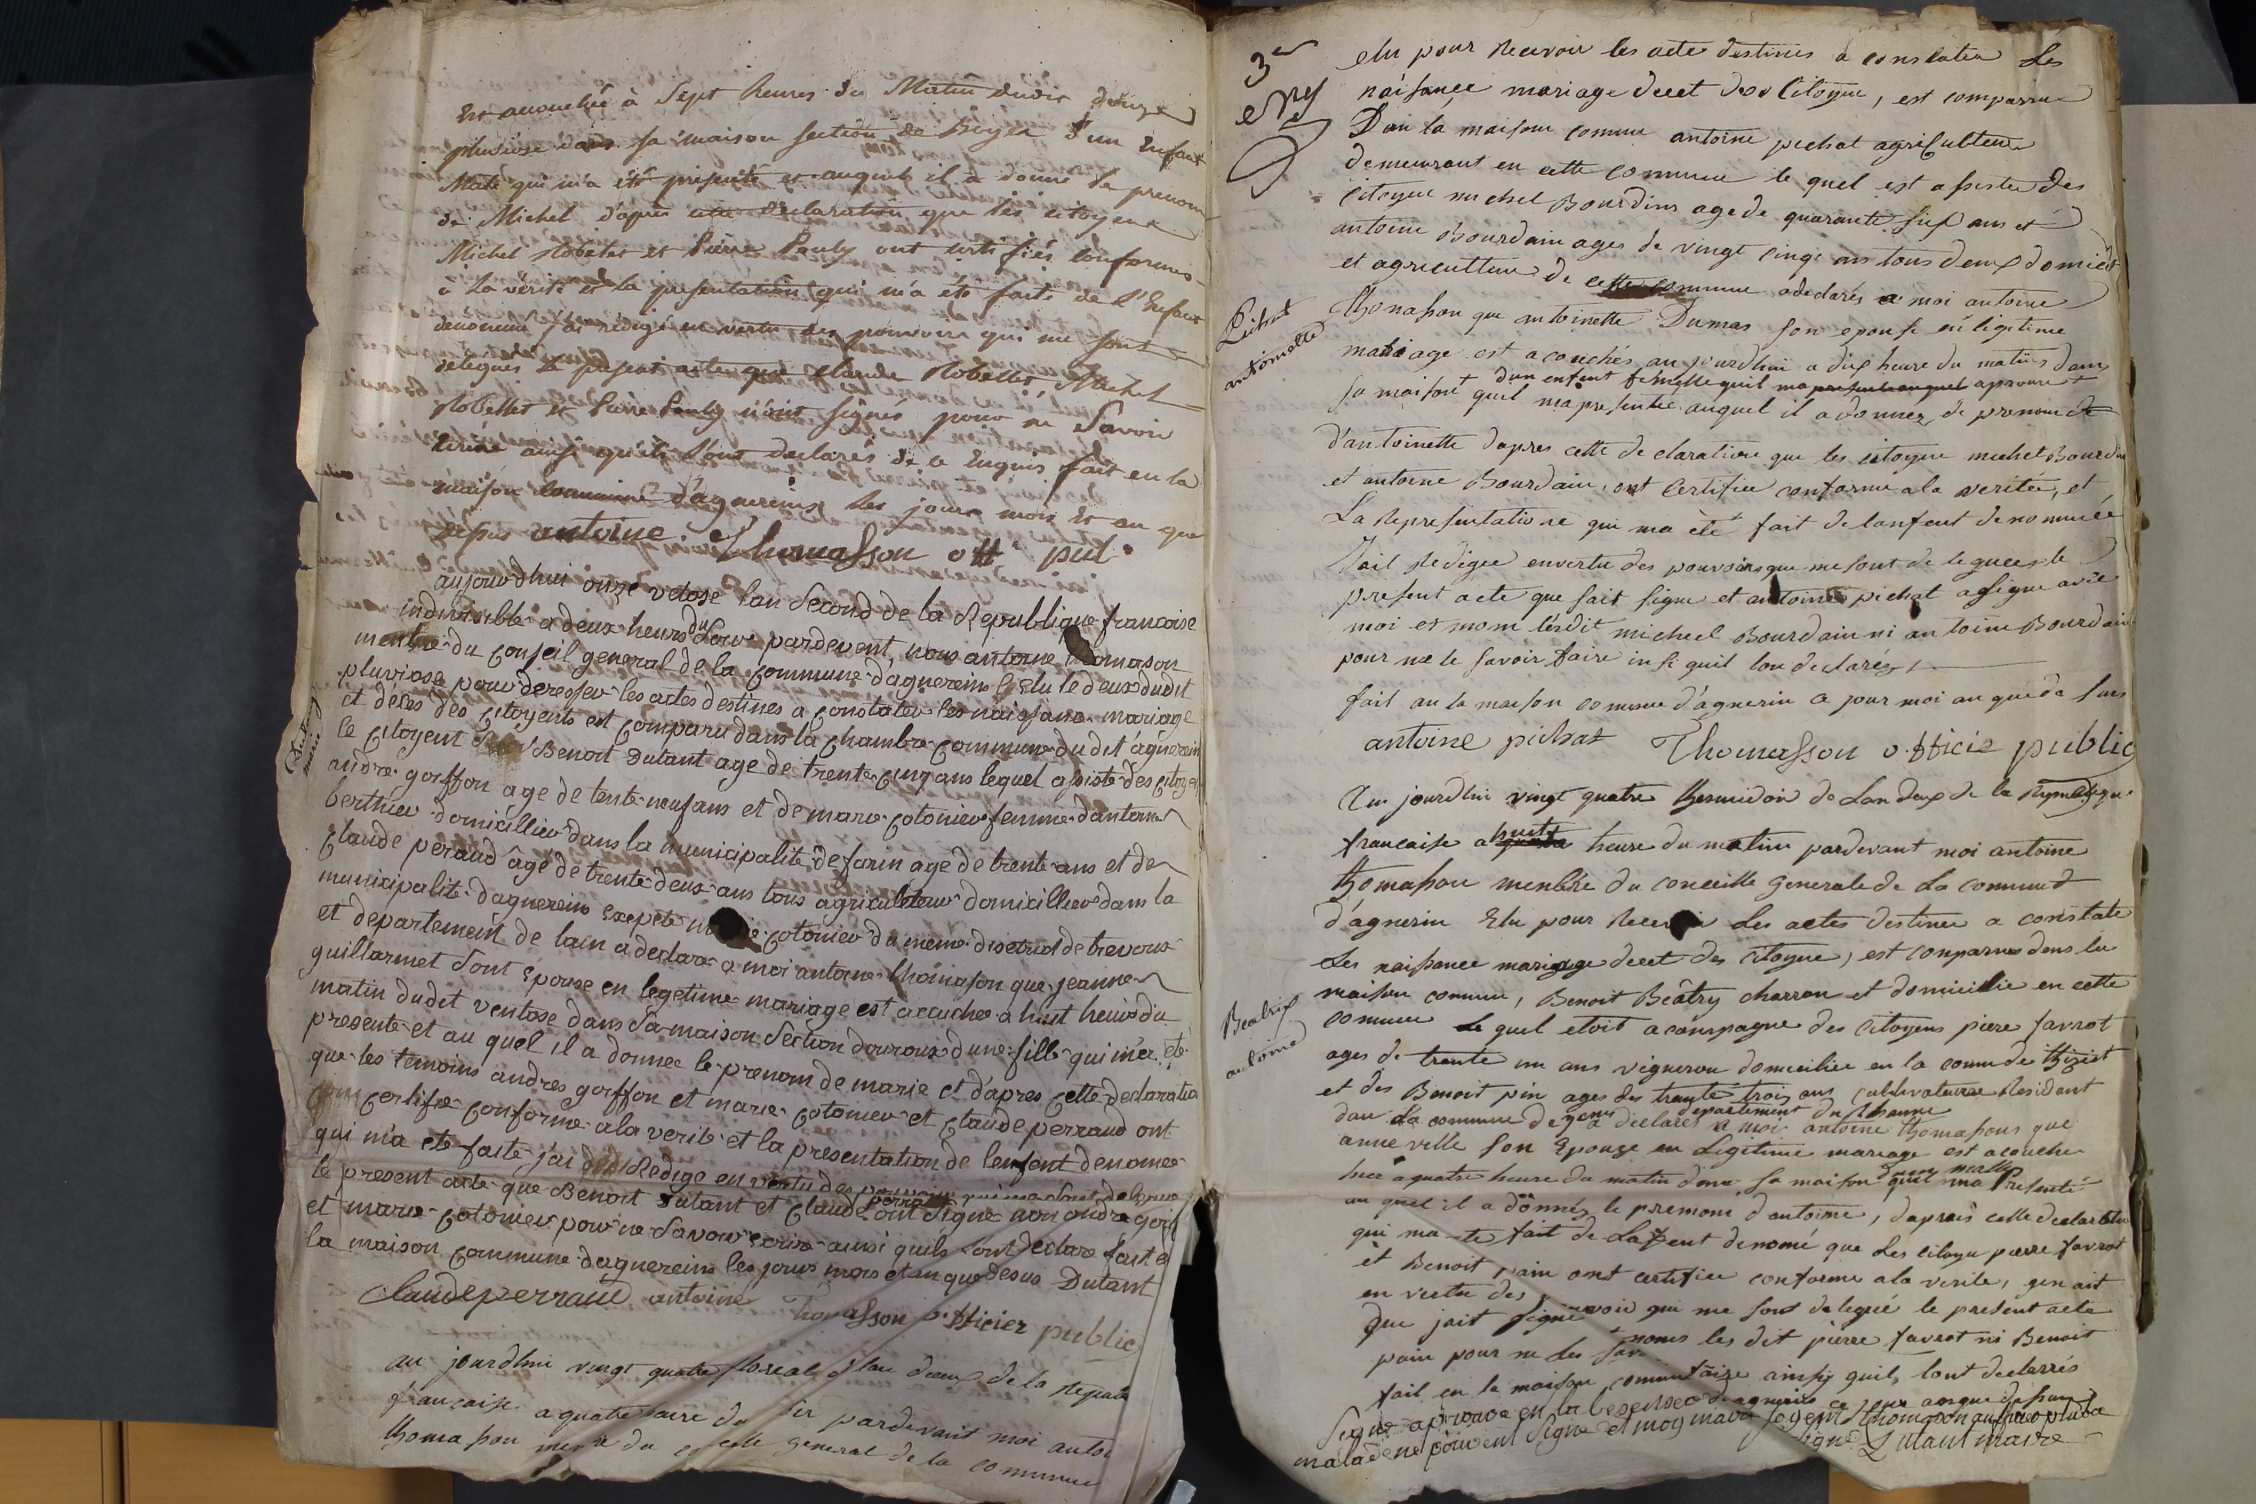 Est acouchée à Sept heures du Matin dudit douze
pluviose dans sa maison section de Biyea d'un Enfant
Male qui m'a été présenté et auquel il a donné le prenom
de Michel d'après cette declaration que les citoyens
Michel Robelet et Pierre Pauly ont certifiés conformes
à la vérité et la présentation qui m'a été faite de l'Enfant
denommé j'ai rédigé en vertu des pouvoirs qui me sont
delegues le present acte que Claude Robellet Michel
Robellet et Pierre Pauly n'ont signés pour ne savoir
écrire ainsi qu'ils l'ont declarés de ce Enquis fait en la
maison commune d'aguereins les jours mois et an que
dessus antoine Thomasson off. pub.
aujourdhui onze vetose lan Second de la Republique francoise
indivisible a deux heures du Soir pardevent, nous antoine thomason
menbre du Conseil general de la Commune daguereins Elu le deux dudit
pluviose pour deresser les actes destines a Constater les naissance mariage
et deces des Citoyents est Comparu dans la Chambre Commune du dit aguerein
le Citoyent Benoit Dutant age de trente Cinq ans lequel assiste des Citoyen
andre goiffon age de tente neuf ans et de marie Cotonier femme dantoine
berthier domicillier dans la municipalité de farin age de trente ans et de
Claude peraud âgé de trente deux ans tous agriculteur domicillier dans la
municipalité daguereins Excpete Cotonier du meme district de trevoux
et departement de lain a declare a moi antoine thomason que jeanne
guillarmet Sont Epouse en legetime mariage est acauchee a huit heures du
matin dudit ventose dans Sa maison Section douroux dune fille qui m'a été
presente et au quel il a donnee le prenom de marie et d'apres Cette declaratio
que les temoins andres goiffon et marie Cotonier et Claude perraud ont
Certifie Conforme a la verite et la presentation de lenfant denomee
qui m'a ete faite j'ai Redige en vertu des
le present acte que Benoit Dutant et Claude perraud ont Signe non andre goif
et marie Cotonier pour ne Savoir Ecrire ainsi quils lont declare fait a
la maison Commune daguereins les jours mois et an que desus Dutant
Claude perraud antoine
Thomasson officier public
au jourdhui vingt quatre floreal lan deux de la Republi
francaise a quatre heure du pardevant moi antoi
thomasson du general de la commune
3e
elu pour Recevoir les acte destinés a constater Les
naisance mariage decet des Citoyne, est comparru
Dan la maison comme antoine pichat agriculteur
demeurant en cette commune le quel est assister des
citoyen michel Bourdins age de quarante six ans et
antoine Bourdain ages de vingt cinqt ans tous deux domicil
et agriculteur de cette commune adeclarés a moi antoine
Pichat
antoinette
Thonasson que antoinette Dumas Son epouse en légitime
mariage est acouchés aujourdhui a dix heure du matins dans
dun enfent femelle quil aprouve
sa maison quil ma presentée auquel il a donnez de prenom de
d'antoinette dapres cette declaration que les citoyen michel Bourdin
et antoine Bourdain, ont Certifiee conforme ala veritée, et
La Representatione qui ma été fait de lanfent denommée
Jait Redigee envertu des pouvoirs que me sont deleguees le
present acte que jait signe et antoine pichat a signe avec
moi et nom lesdit michel Bourdain ni antoine Bourdain
pour ne le savoir faire insi quil lon declarés
fait an la maison commune d'agnerin a jour moi an que de sus
antoine pichat Thomasson officie public
Au jourdhui vingt quatre thermidoir de Lan deux de la Republique
francaise a huit heure du matin pardevant moi antoine
thomasson menbre du conceille generale de La commune
d'agnerin Elu pour Recevoi Les actes destinee a constate
Les naissance mariage decet des Citoyne, est comparus dens la
Beatrix
antoine
maison commune, Benoit Beâtry charron et domicilie en cette
commune Le quel etoit acompagne des Citoyens piere favrot
ages de trente un ans vigneron domiciliee en la comu de thizist
et des Benoit pin ages des trante trois ans cultivateurae Resident
departement du Rhonne
dans La commune de a declarés a moi antoine thomasson que
anne ville Son Epouze en Legitime mariage est acouchee
hier a quatre heure du matin dans sa maison quil ma presenté
au quel il a donnés le prenom d'antoine, daprais cette declaration
qui ma ete fait de Lafent denomé que Les Citoyn pierre favrot
et Benoit pain ont certifiee conforme ala verite, gen ait
en vertu des pouvoir qui me sont delegueé le present acte
que jait signe nonts les dit pierre favrot ni Benoit
pain pour ne Les faire ainsy quils lont declarrés
fait en la maison commune dagnerins ce jour an que dessus
Signe aprouve en la besence Thomason
malade ne pouvent Signe et moy Dutant maire